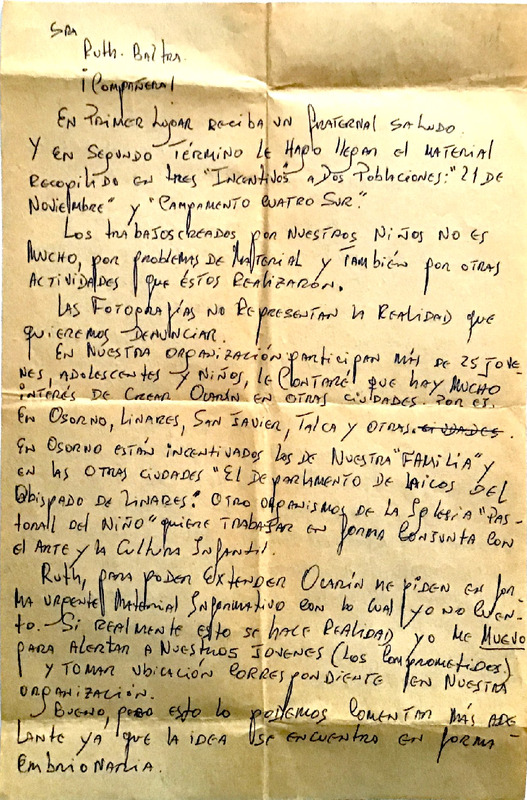 Sra
Ruth. Baltra.
¡Compañera!
En Primer lugar reciba un fraternal saludo.
Y en Segundo Término le Hago llegar el material
recopilido en tres "Incentivos" a Dos Poblaciones: "21 de
Noviembre" y "Campamento Cuatro Sur".
Los trabajos creados por nuestros Niños no es
mucho, por problemas de Material y también por otras
actividades que éstos realizarón.
Las Fotografías no Representan la Realidad que
queremos denunciar.
En nuestra organización participan más de 25 jove-
nes, adolescentes y niños, le Contaré que hay mucho
interés de crear Ocarín en otras ciudades. Por ej.
en Osorno, Linares, San Javier, Talca y otras. ciudades.
En Osorno están incentivados los de Nuestra "Familia" y
en las otras ciudades "El Departamento de Laicos del
Obispado de Linares". Otro organismos de la Iglesia "Pas-
toral del Niño" quiere trabajar en forma conjunta con
el Arte y la Cultura Infantil.
Ruth, para poder extender Ocarín me piden en for-
ma urgente Material Informativo con lo cual yo no cuen-
to. - Si realmente esto se hace realidad yo me muevo
para alertar a nuestros jovenes (los comprometidos)
y tomar ubicación correspondiente en nuestra
organización.
Bueno, pero esto lo podemos comentar más ade-
lante ya que la idea se encuentra en forma
embrionaria.